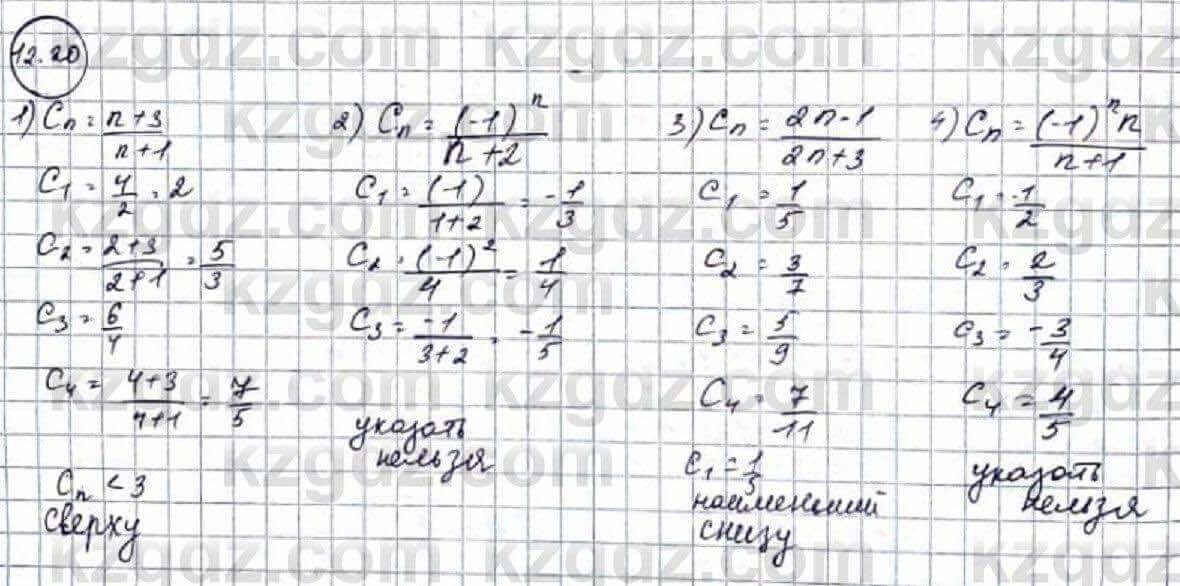 12.20
1) Cₙ = (n+3)/(n+1)
C₁ = 4/2 = 2
C₂ = (2+3)/(2+1) = 5/3
C₃ = 6/4
C₄ = (4+3)/(4+1) = 7/5
Cₙ < 3
сверху
2) Cₙ = (-1)ⁿ/(n+2)
C₁ = (-1)/(1+2) = -1/3
C₂ = (-1)²/4 = 1/4
C₃ = -1/(3+2) = -1/5
указать
нельзя
3) Cₙ = (2n-1)/(2n+3)
C₁ = 1/5
C₂ = 3/7
C₃ = 5/9
C₄ = 7/11
C₁ = 1/5
наименьший
снизу
4) Cₙ = (-1)ⁿn/(n+1)
C₁ = -1/2
C₂ = 2/3
C₃ = -3/4
C₄ = 4/5
указать
нельзя
kzgdz.com